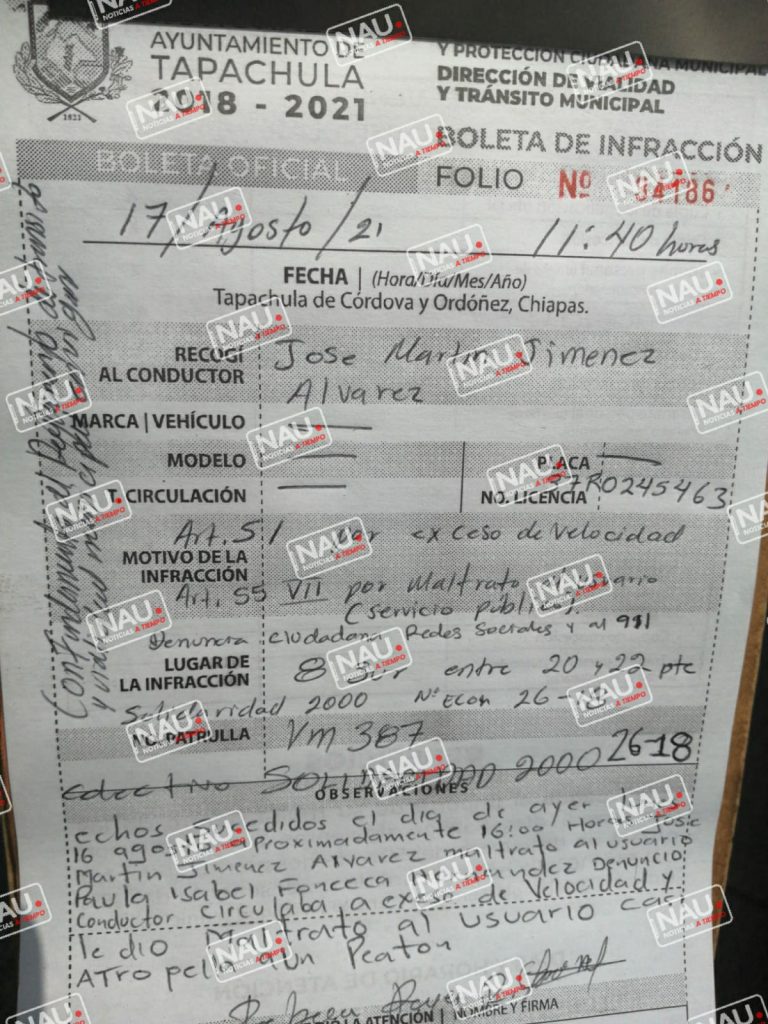 AYUNTAMIENTO DE
TAPACHULA
2018 - 2021
1821
Y PROTECCIÓN CIUDADANA MUNICIPAL
DIRECCIÓN DE VIALIDAD
Y TRÁNSITO MUNICIPAL
BOLETA DE INFRACCIÓN
BOLETA OFICIAL
FOLIO Nº 04186
17/Agosto/21 11:40 horas
FECHA | (Hora/Día/Mes/Año)
Tapachula de Córdova y Ordóñez, Chiapas.
RECOGÍ
AL CONDUCTOR
Jose Martin Jimenez
Alvarez
MARCA | VEHÍCULO
MODELO
PLACA
T. CIRCULACIÓN
NO. LICENCIA
R0245463
Art. 51 por exceso de velocidad
MOTIVO DE LA
INFRACCIÓN
Art. 55 VII por Maltrato usuario
(servicio público).
Denuncia ciudadana Redes Sociales y al 911
LUGAR DE
LA INFRACCIÓN
8 sur entre 20 y 22 pte
Solidaridad 2000 Nº Econ 26-18
NO. PATRULLA
VM 387
Colectivo SOLIDARIDAD 2000 26-18
OBSERVACIONES
echos sucedidos el dia de ayer
16 agosto aproximadamente 16:00 Horas Jose
Martin Jimenez Alvarez maltrato al usuario
Paula Isabel Fonceca Denuncio
Conductor circulaba a exeso de Velocidad y
le dio Maltrato al usuario casi
Atropella Un Peaton
LA ATENCIÓN | NOMBRE Y FIRMA
Con fundamento al Reglamento de transito
y vialidad municipal en vigor
NAU
NOTICIAS A TIEMPO